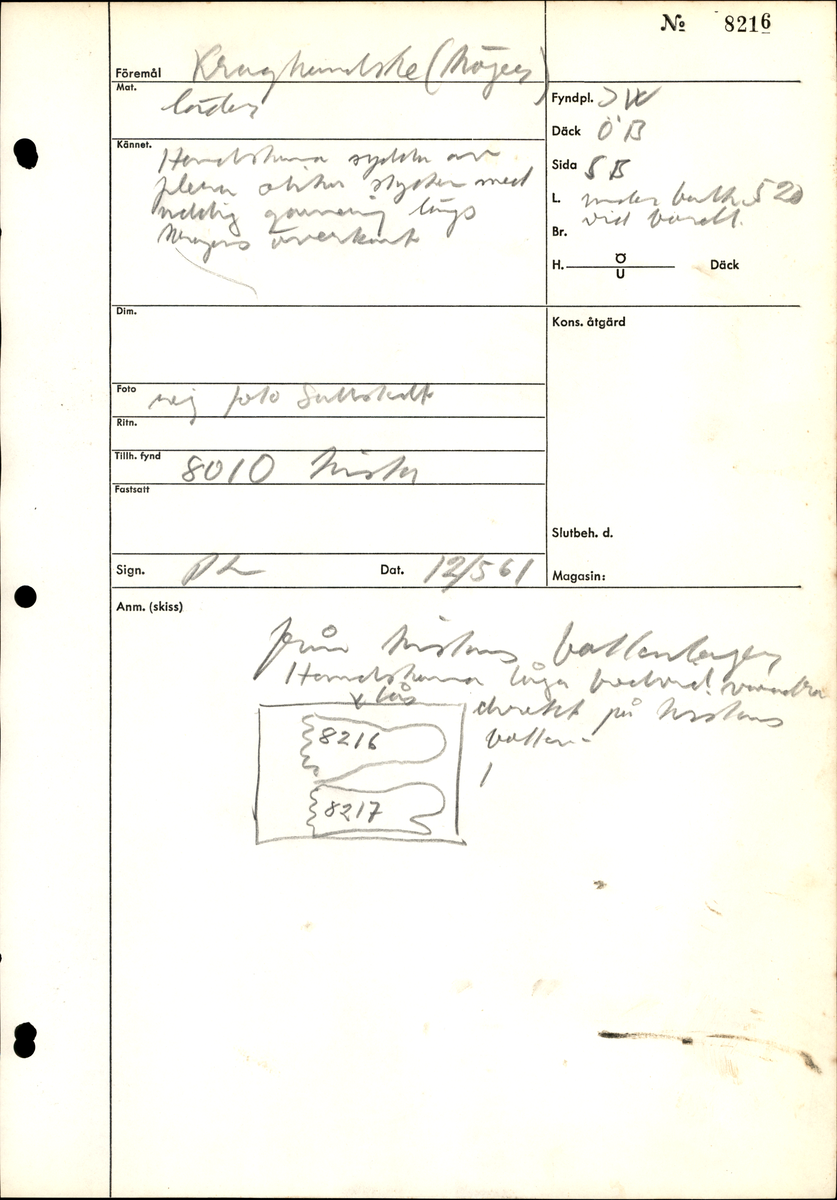 Nº 8216
Föremål Kraghandske (höger)
Mat. läder
Fyndpl. IW
Däck ÖB
Sida SB
L. under balk 520
vid bordl.
Br.
H. Ö U Däck
Kännet. Handskarna sydda av
flera olika stycken med
uddig garnering längs
kragens överkant
Dim.
Kons. åtgärd
Foto nej foto
Ritn.
Tillh. fynd 8010 kista
Fastsatt
Slutbeh. d.
Sign. PL Dat. 12/5 61
Magasin:
Anm. (skiss)
från kistans bottenlager
Handskarna låga bredvid varandra
direkt på kistans
botten
lås
8216
8217